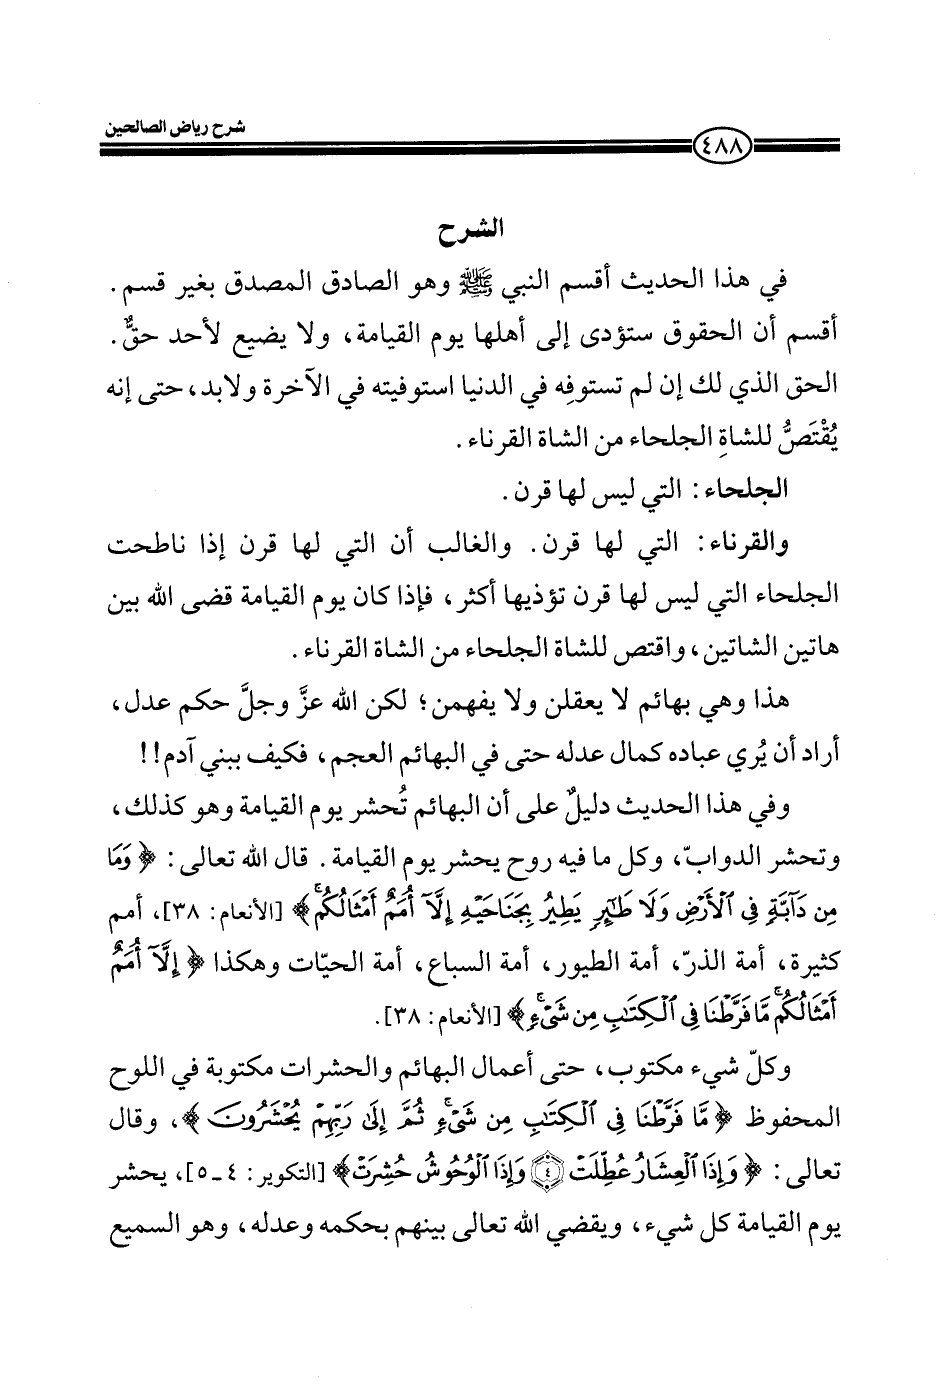 شرح رياض الصالحين
٤٨٨
الشرح
في هذا الحديث أقسم النبي ﷺ وهو الصادق المصدق بغير قسم .
أقسم أن الحقوق ستؤدى إلى أهلها يوم القيامة، ولا يضيع لأحد حقٌّ.
الحق الذي لك إن لم تستوفِه في الدنيا استوفيته في الآخرة ولابد، حتى إنه
يُقْتَصُّ للشاةِ الجلحاء من الشاة القرناء .
الجلحاء: التي ليس لها قرن .
والقرناء: التي لها قرن. والغالب أن التي لها قرن إذا ناطحت
الجلحاء التي ليس لها قرن تؤذيها أكثر، فإذا كان يوم القيامة قضى الله بين
هاتين الشاتين، واقتص للشاة الجلحاء من الشاة القرناء .
هذا وهي بهائم لا يعقلن ولا يفهمن؛ لكن الله عزَّ وجلَّ حكم عدل،
أراد أن يُري عباده كمال عدله حتى في البهائم العجم، فكيف ببني آدم!!
وفي هذا الحديث دليلٌ على أن البهائم تُحشر يوم القيامة وهو كذلك،
وتحشر الدوابّ، وكل ما فيه روح يحشر يوم القيامة. قال الله تعالى: ﴿ وَمَا
مِن دَآبَّةٍ فِي ٱلْأَرْضِ وَلَا طَٰٓئِرٍ يَطِيرُ بِجَنَاحَيْهِ إِلَّآ أُمَمٌ أَمْثَالُكُمۚ ﴾ [الأنعام: ٣٨]، أمم
كثيرة، أمة الذرّ، أمة الطيور، أمة السباع، أمة الحيّات وهكذا ﴿ إِلَّآ أُمَمٌ
أَمْثَالُكُمۚ مَّا فَرَّطْنَا فِي ٱلْكِتَٰبِ مِن شَيْءٍۚ ﴾ [الأنعام: ٣٨].
وكلّ شيء مكتوب، حتى أعمال البهائم والحشرات مكتوبة في اللوح
المحفوظ ﴿ مَّا فَرَّطْنَا فِي ٱلْكِتَٰبِ مِن شَيْءٍۚ ثُمَّ إِلَىٰ رَبِّهِمْ يُحْشَرُونَ ﴾، وقال
تعالى: ﴿ وَإِذَا ٱلْعِشَارُ عُطِّلَتْ ﴿٤﴾ وَإِذَا ٱلْوُحُوشُ حُشِرَتْ ﴾ [التكوير: ٤ ـ ٥]، يحشر
يوم القيامة كل شيء، ويقضي الله تعالى بينهم بحكمه وعدله، وهو السميع